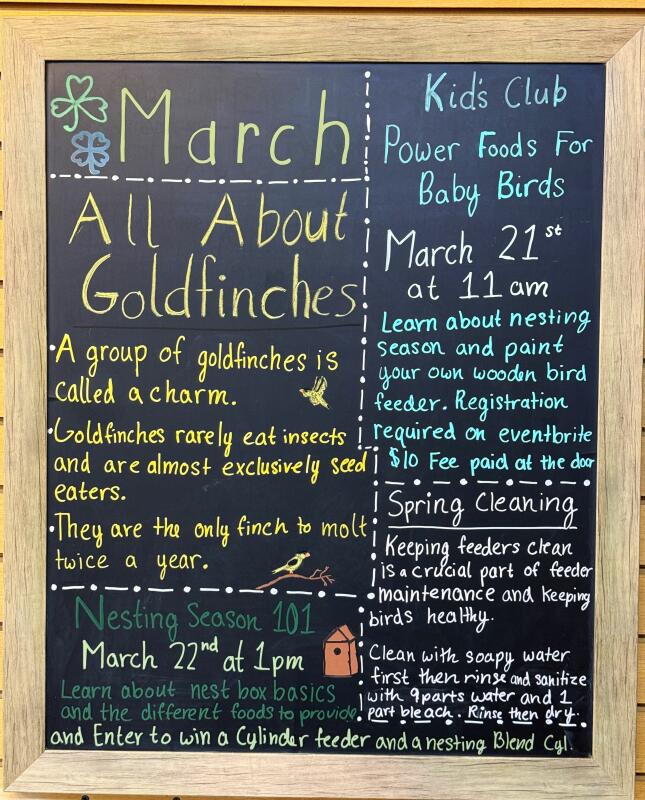 March
All About
Goldfinches
• A group of goldfinches is
called a charm.
• Goldfinches rarely eat insects
and are almost exclusively seed
eaters.
• They are the only finch to molt
twice a year.
Nesting Season 101
March 22nd at 1pm
Learn about nest box basics
and the different foods to provide.
and Enter to win a Cylinder feeder and a nesting Blend Cyl.
Kid's Club
Power Foods For
Baby Birds
March 21st
at 11 am
Learn about nesting
season and paint
your own wooden bird
feeder. Registration
required on eventbrite
$10 Fee paid at the door
Spring Cleaning
Keeping feeders clean
is a crucial part of feeder
maintenance and keeping
birds healthy.
Clean with soapy water
first then rinse and sanitize
with 9 parts water and 1
part bleach. Rinse then dry.